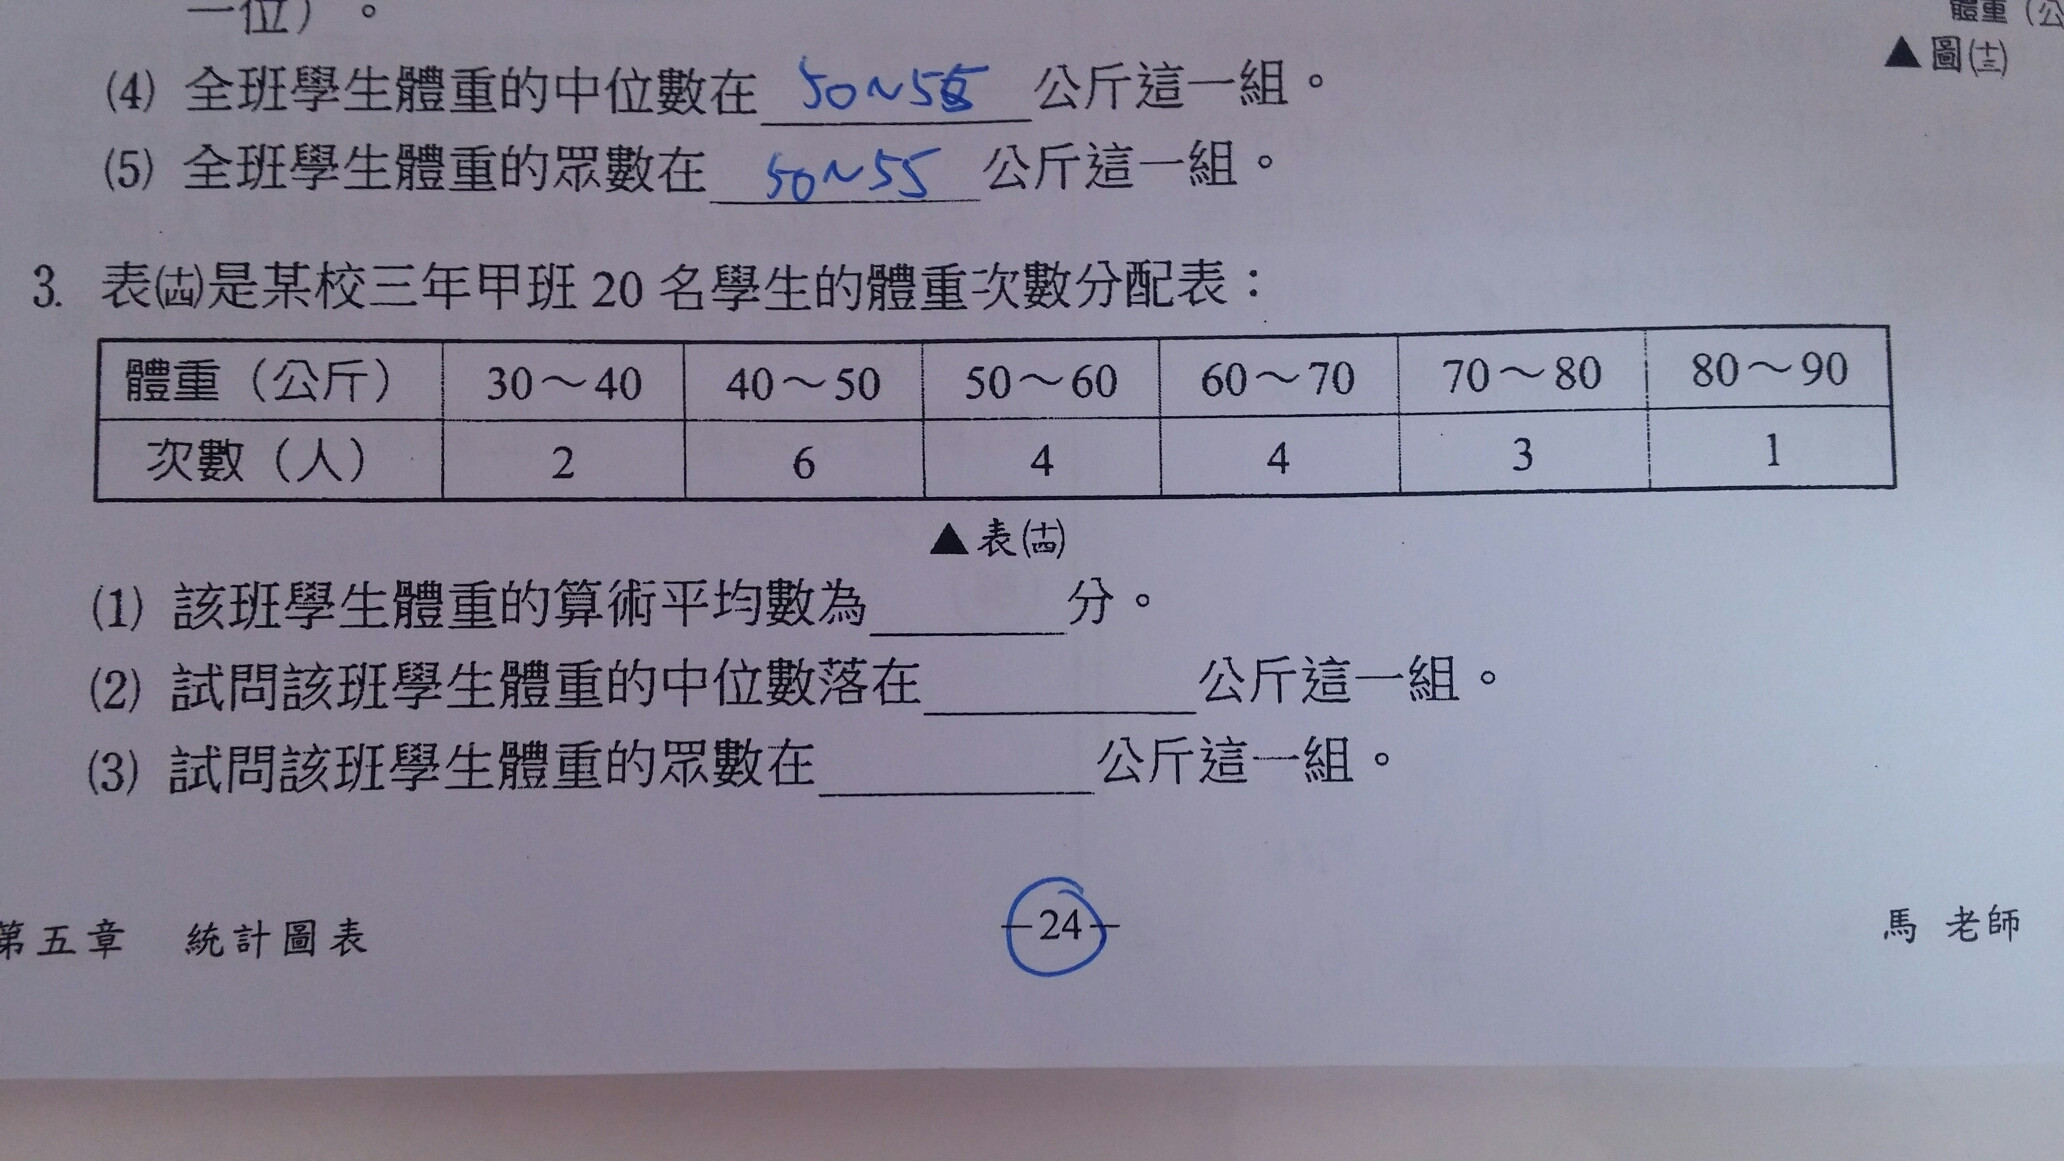 一位）。
體重（公
▲圖(十三)
(4) 全班學生體重的中位數在 50~55 公斤這一組。
(5) 全班學生體重的眾數在 50~55 公斤這一組。
3. 表(十四)是某校三年甲班 20 名學生的體重次數分配表：
體重（公斤） 30～40 40～50 50～60 60～70 70～80 80～90
次數（人） 2 6 4 4 3 1
▲表(十四)
(1) 該班學生體重的算術平均數為______分。
(2) 試問該班學生體重的中位數落在________公斤這一組。
(3) 試問該班學生體重的眾數在________公斤這一組。
第五章 統計圖表 －24－ 馬 老師